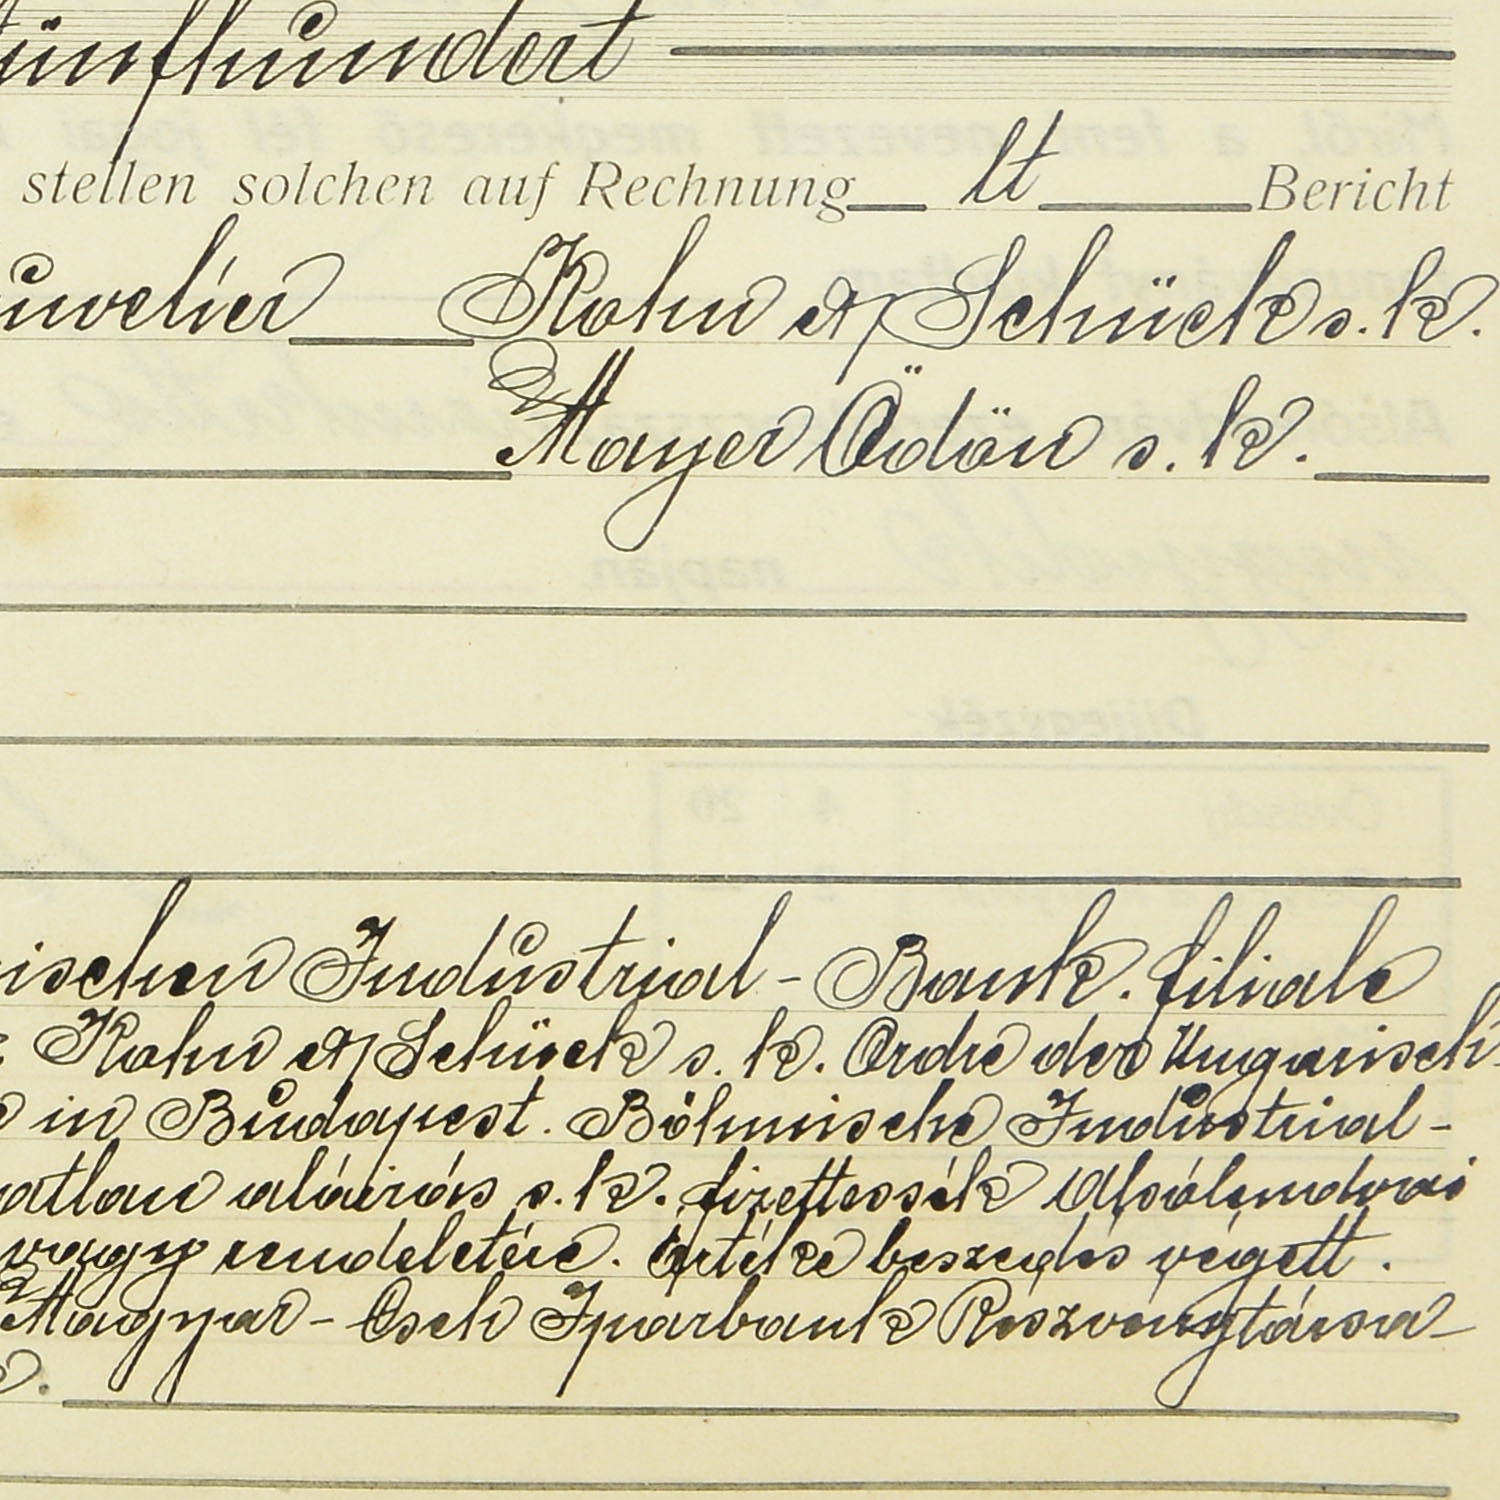 fünfhundert
stellen solchen auf Rechnung lt Bericht
uwelier Kohn & Schück s. k.
Mayer Ödön s. k.
ischen Industrial-Bank. filiale
Kohn & Schück s. k. Ordre der Ungarisch-
in Budapest. Böhmische Industrial-
atlan aláirás s. k. fizettessék Alsólendvai
vagy rendeletére. Értéke beszedés végett.
Magyar-Cseh Iparbank Részvénytársa-